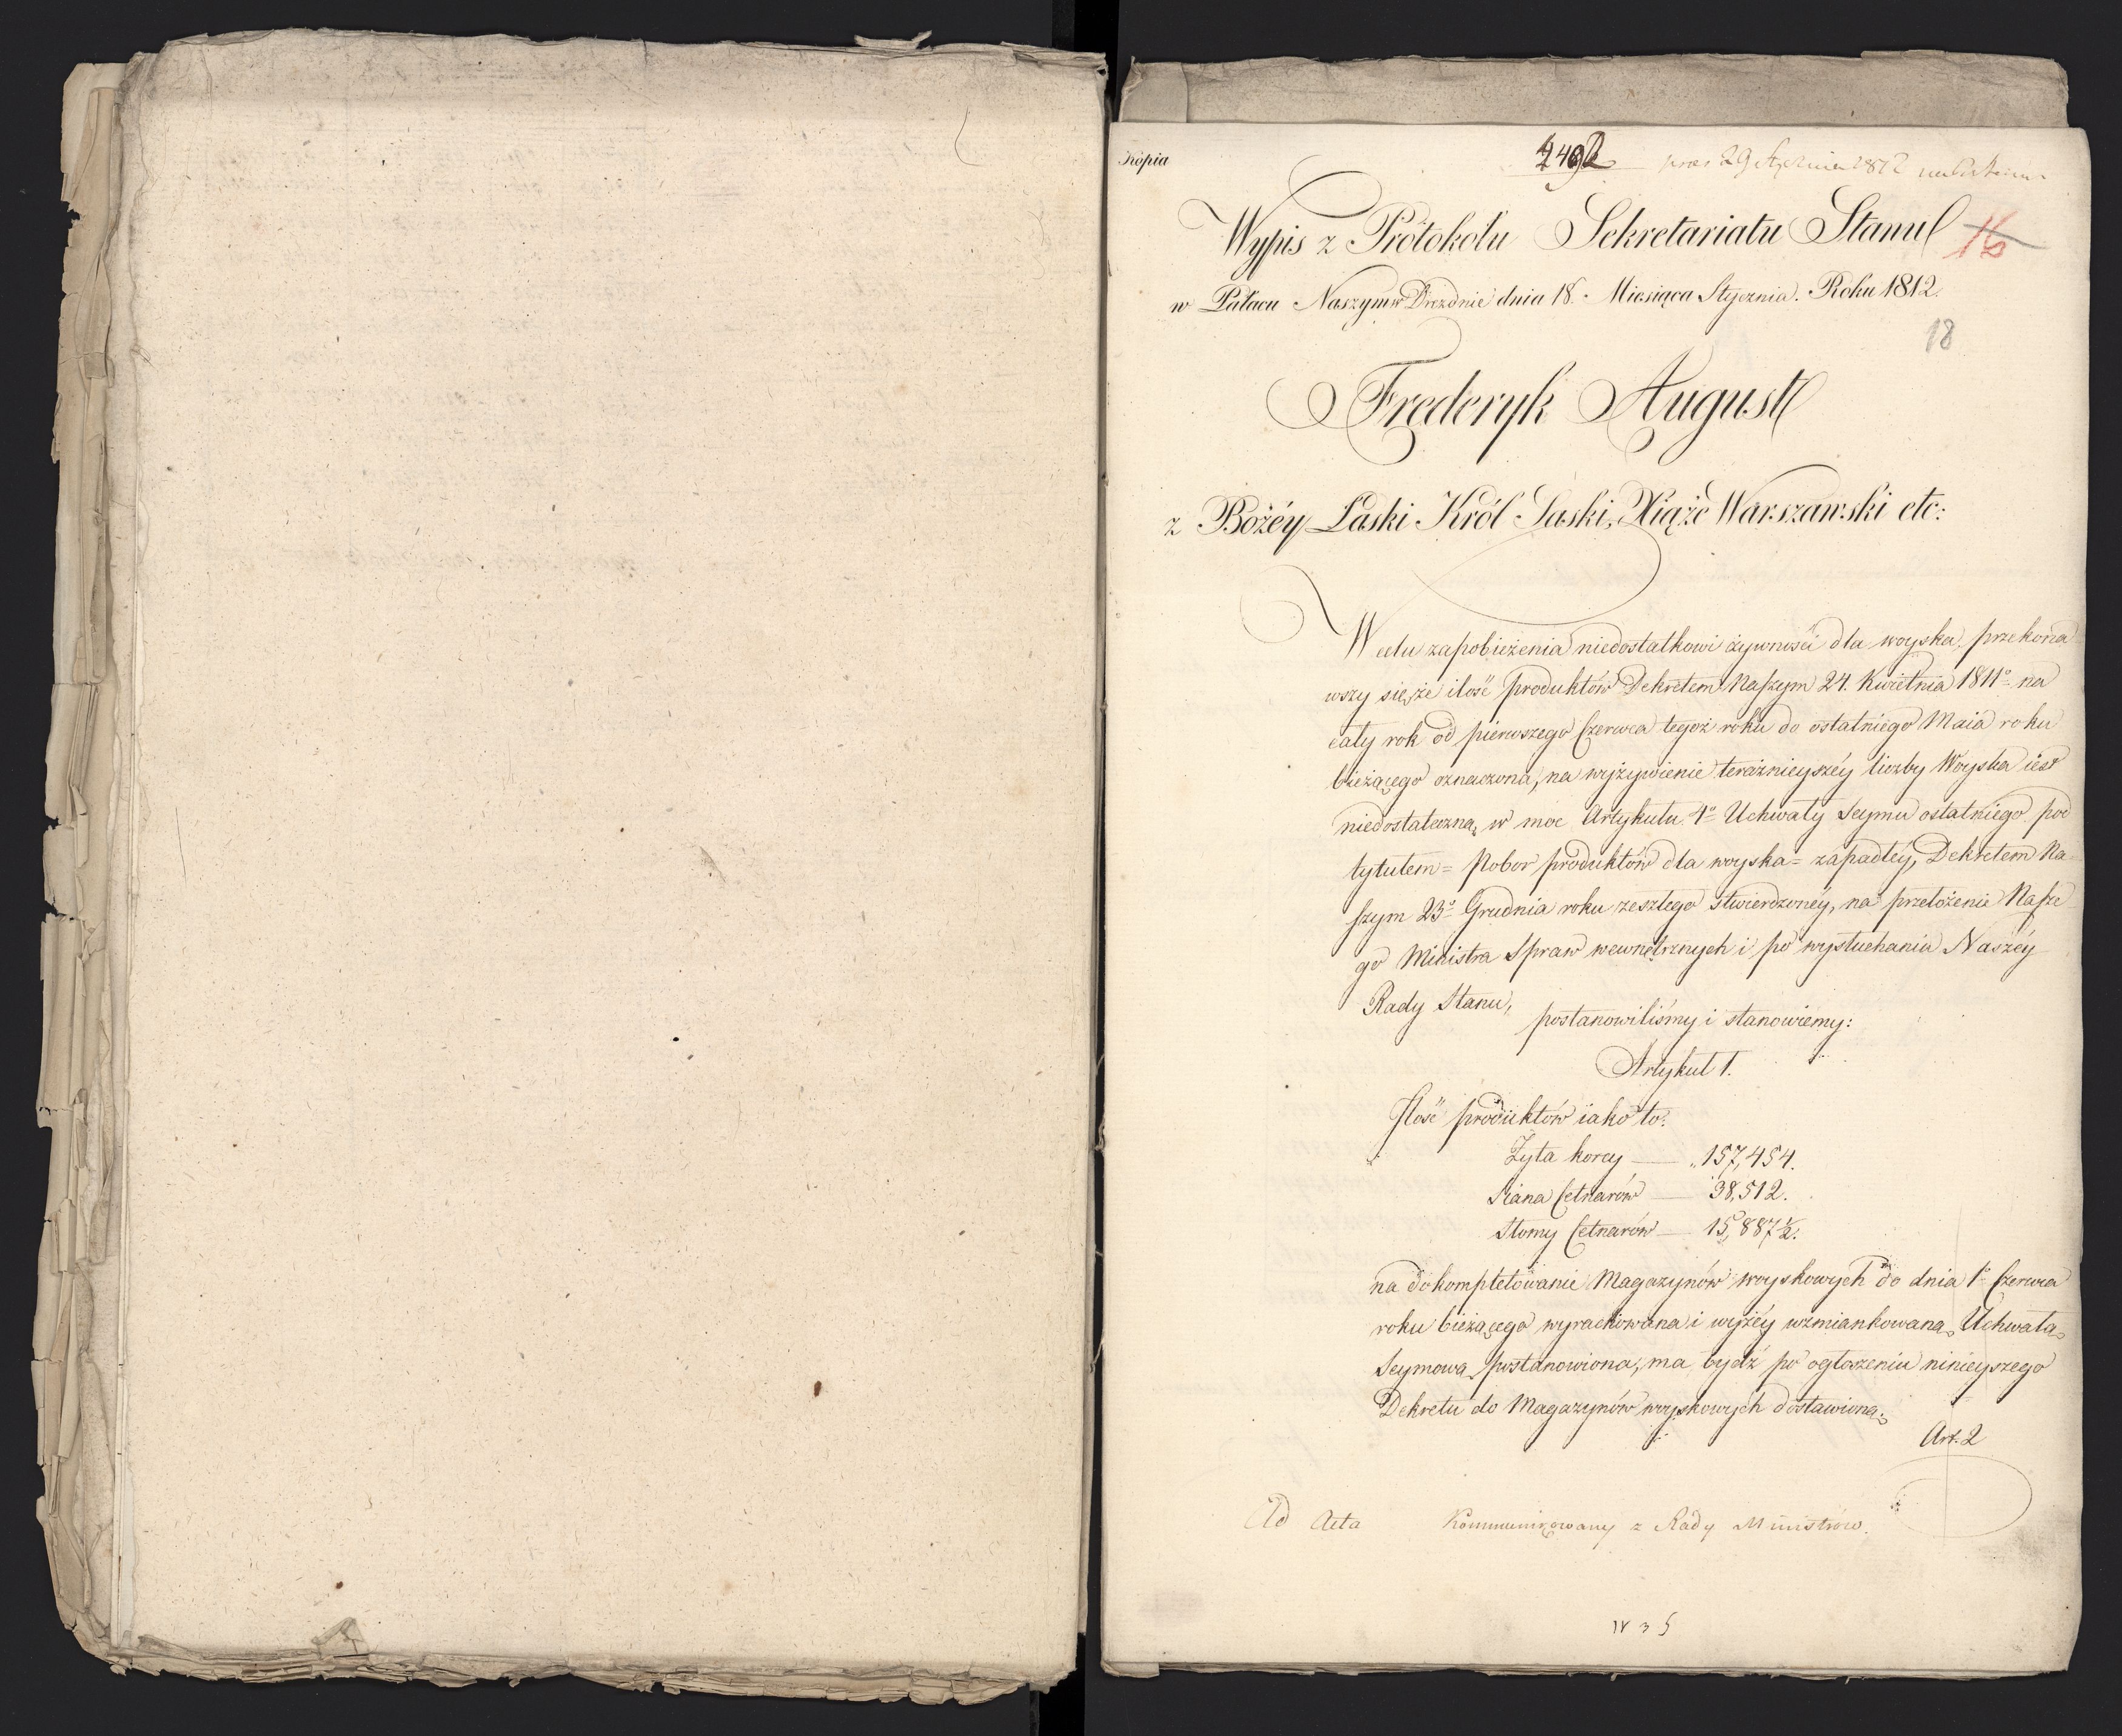 Kopia
præs 29 Stycznia 1812
Wypis z Protokołu Sekretariatu Stanu
16
w Pałacu Naszym w Dreznie dnia 18. Miesiąca Stycznia. Roku 1812.
18
Frederyk August
z Bożéy Łaski Król Saski, Xiąże Warszawski etc:
W celu zapobieżenia niedostatkowi żywności dla woyska, przekona
wszy się, że ilość produktów Dekretem Naszym 24. Kwietnia 1811º na
cały rok od pierwszego Czerwca tegoż roku do ostatniego Maia roku
bieżącego oznaczona, na wyżywienie teraźnieyszéy liczby Woyska iest
niedostateczną, w moc Artykułu 1º Uchwały Seymu ostatniego pod
tytułem = Pobor produktów dla woyska = zapadłéy, Dekretem Na-
szym 23º Grudnia roku zeszłego stwierdzonéy, na przełożenie Nasze-
go Ministra Spraw wewnętrznych i po wysłuchaniu Naszéy
Rady Stanu,
postanowiliśmy i stanowiemy:
Artykuł 1.
Ilość produktów iako to:
Żyta korcy — 157,454.
Siana Cetnarów — 38,512.
Słomy Cetnarów — 15,887½.
na dokompletowanie Magazynów woyskowych do dnia 1º Czerwca
roku bieżącego wyrachowana i wyżéy wzmiankowaną Uchwałą
Seymową postanowiona, ma bydź po ogłoszeniu ninieyszego
Dekretu do Magazynów woyskowych dostawioną.
Art. 2
Ad Acta Kommunizowany z Rady Ministrów.